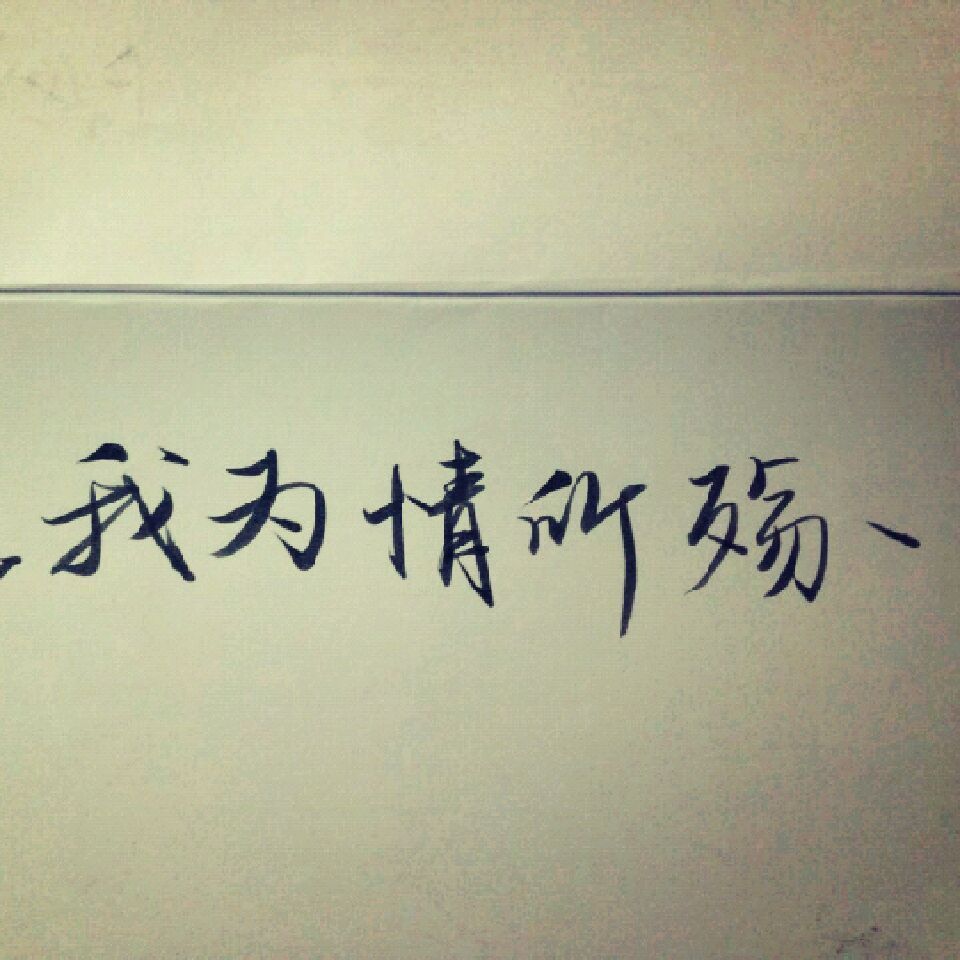 我为情所殇、